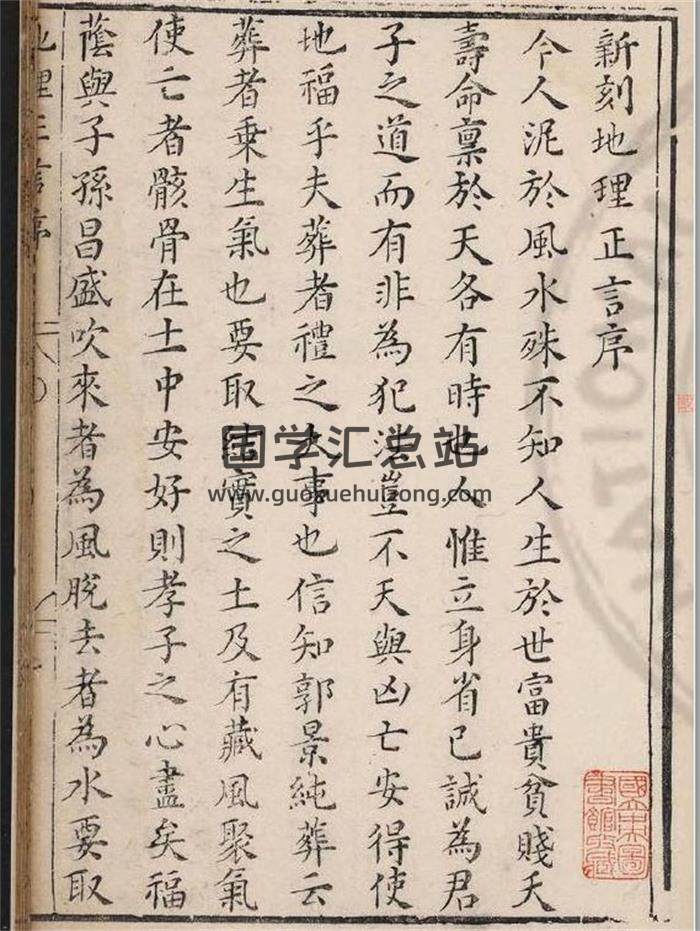 新刻地理正言序
今人泥於風水殊不知人生於世富貴貧賤夭
壽命稟於天各有時也人惟立身省己誠為君
子之道而有非為犯法豈不天與凶亡安得使
地福乎夫葬者禮之大事也信知郭景純葬云
葬者乗生氣也要取結實之土及有藏風聚氣
使亡者骸骨在土中安好則孝子之心盡矣福
蔭與子孫昌盛吹來者為風脫去者為水要取
地理正言序
國學汇总站
www.guoxuehuizong.com